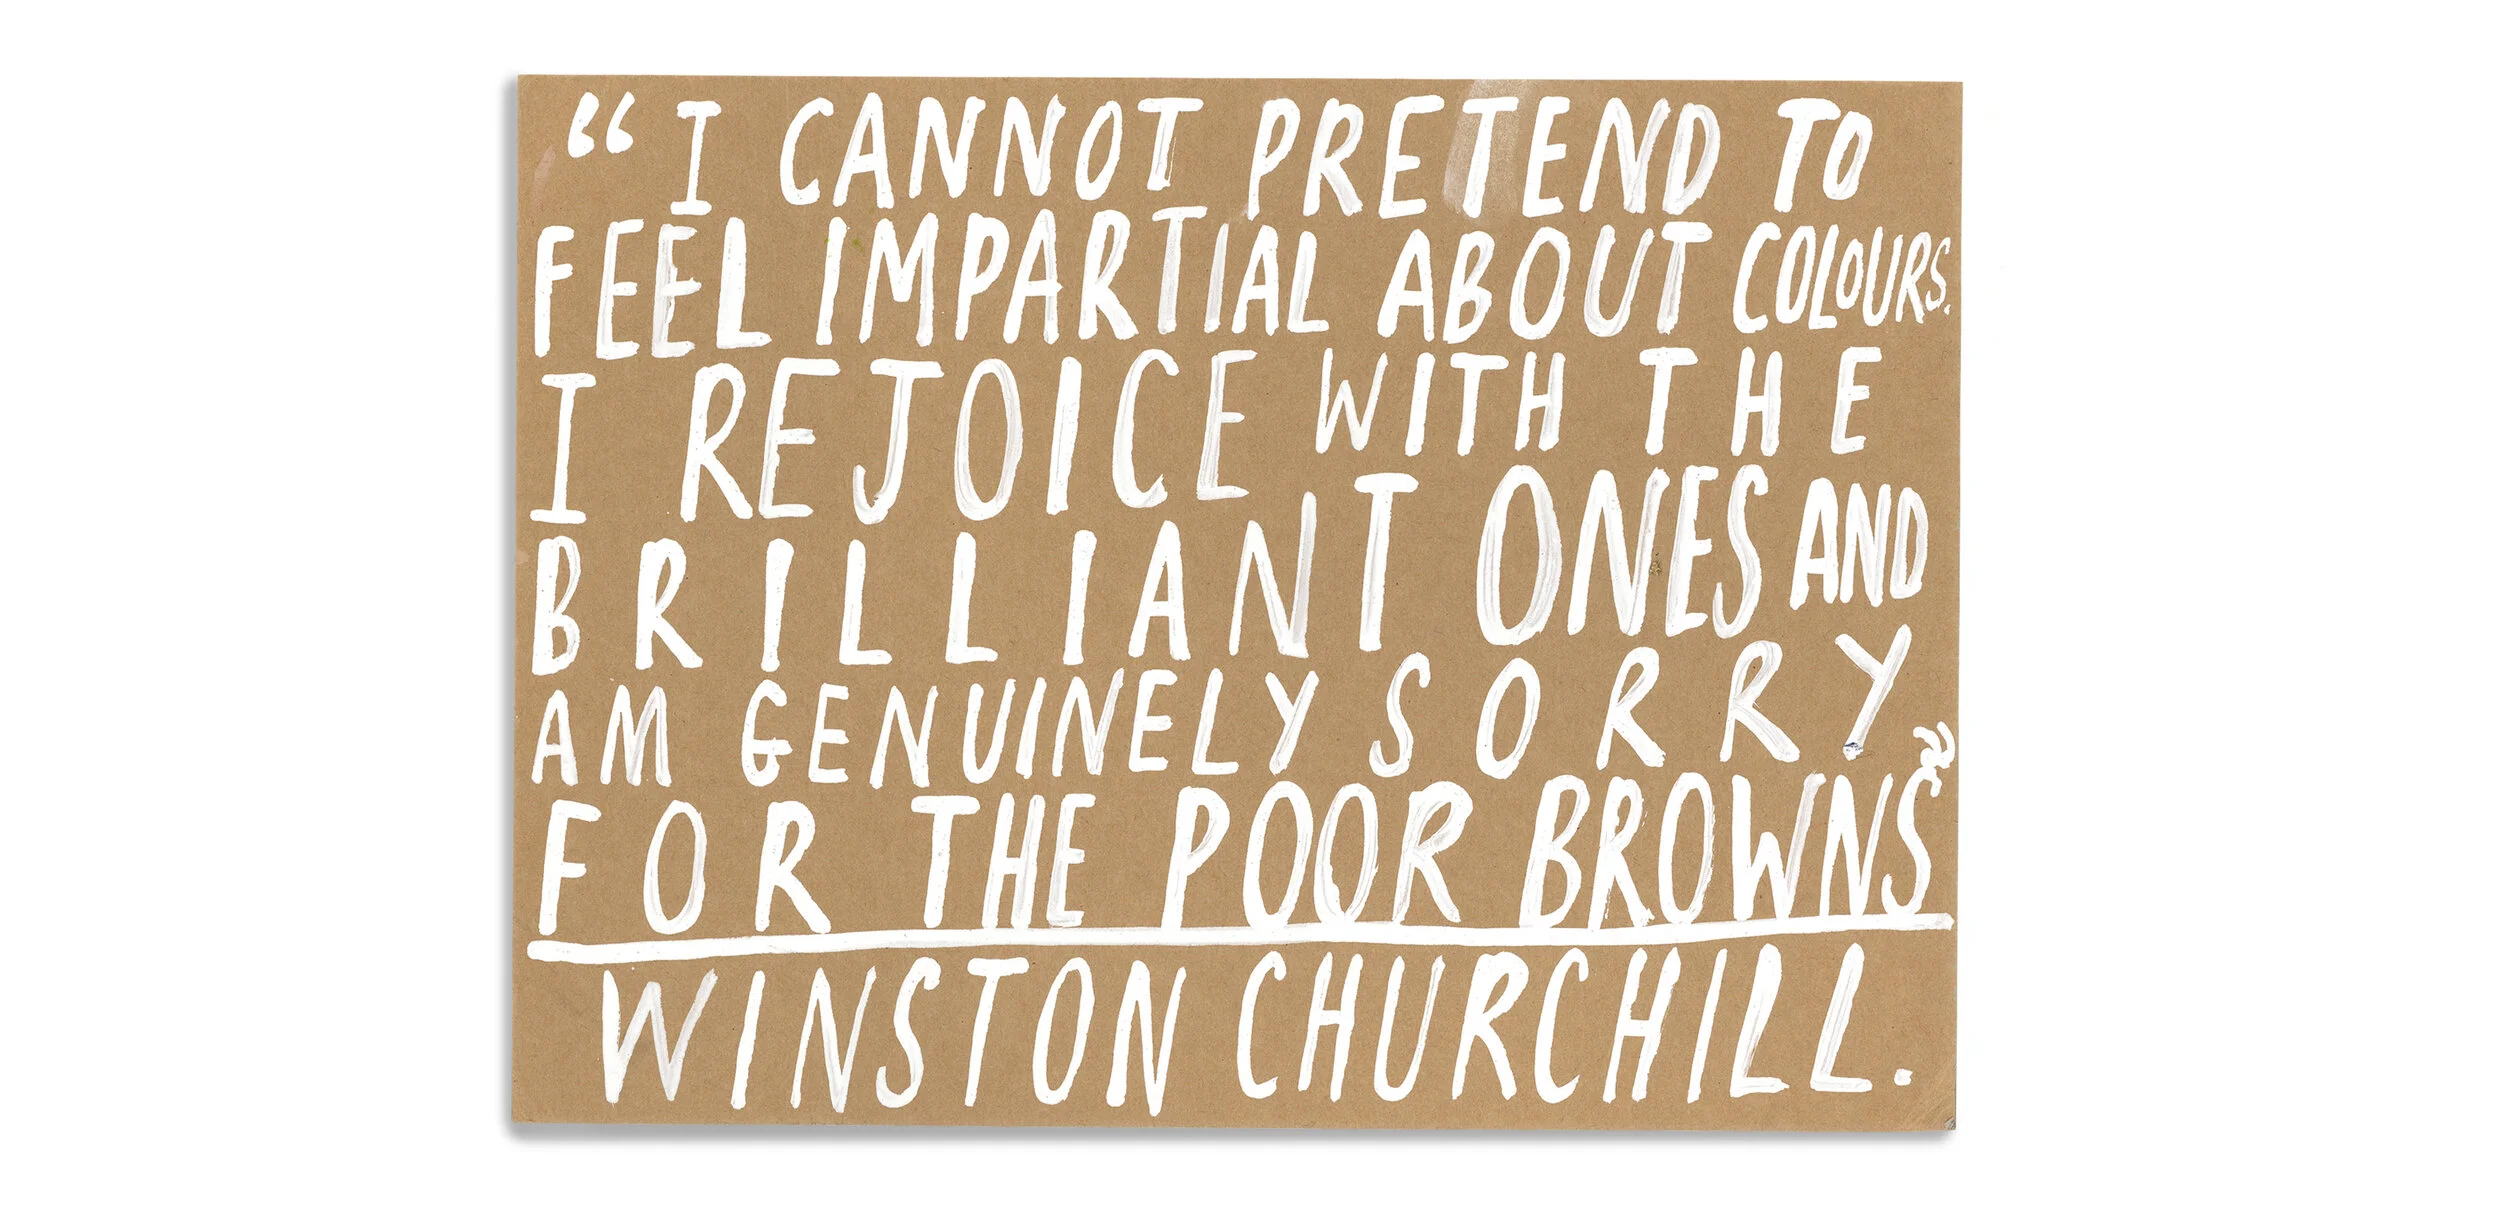 “ I CANNOT PRETEND TO
FEEL IMPARTIAL ABOUT COLOURS.
I REJOICE WITH THE
BRILLIANT ONES AND
AM GENUINELY SORRY
FOR THE POOR BROWNS”
WINSTON CHURCHILL.